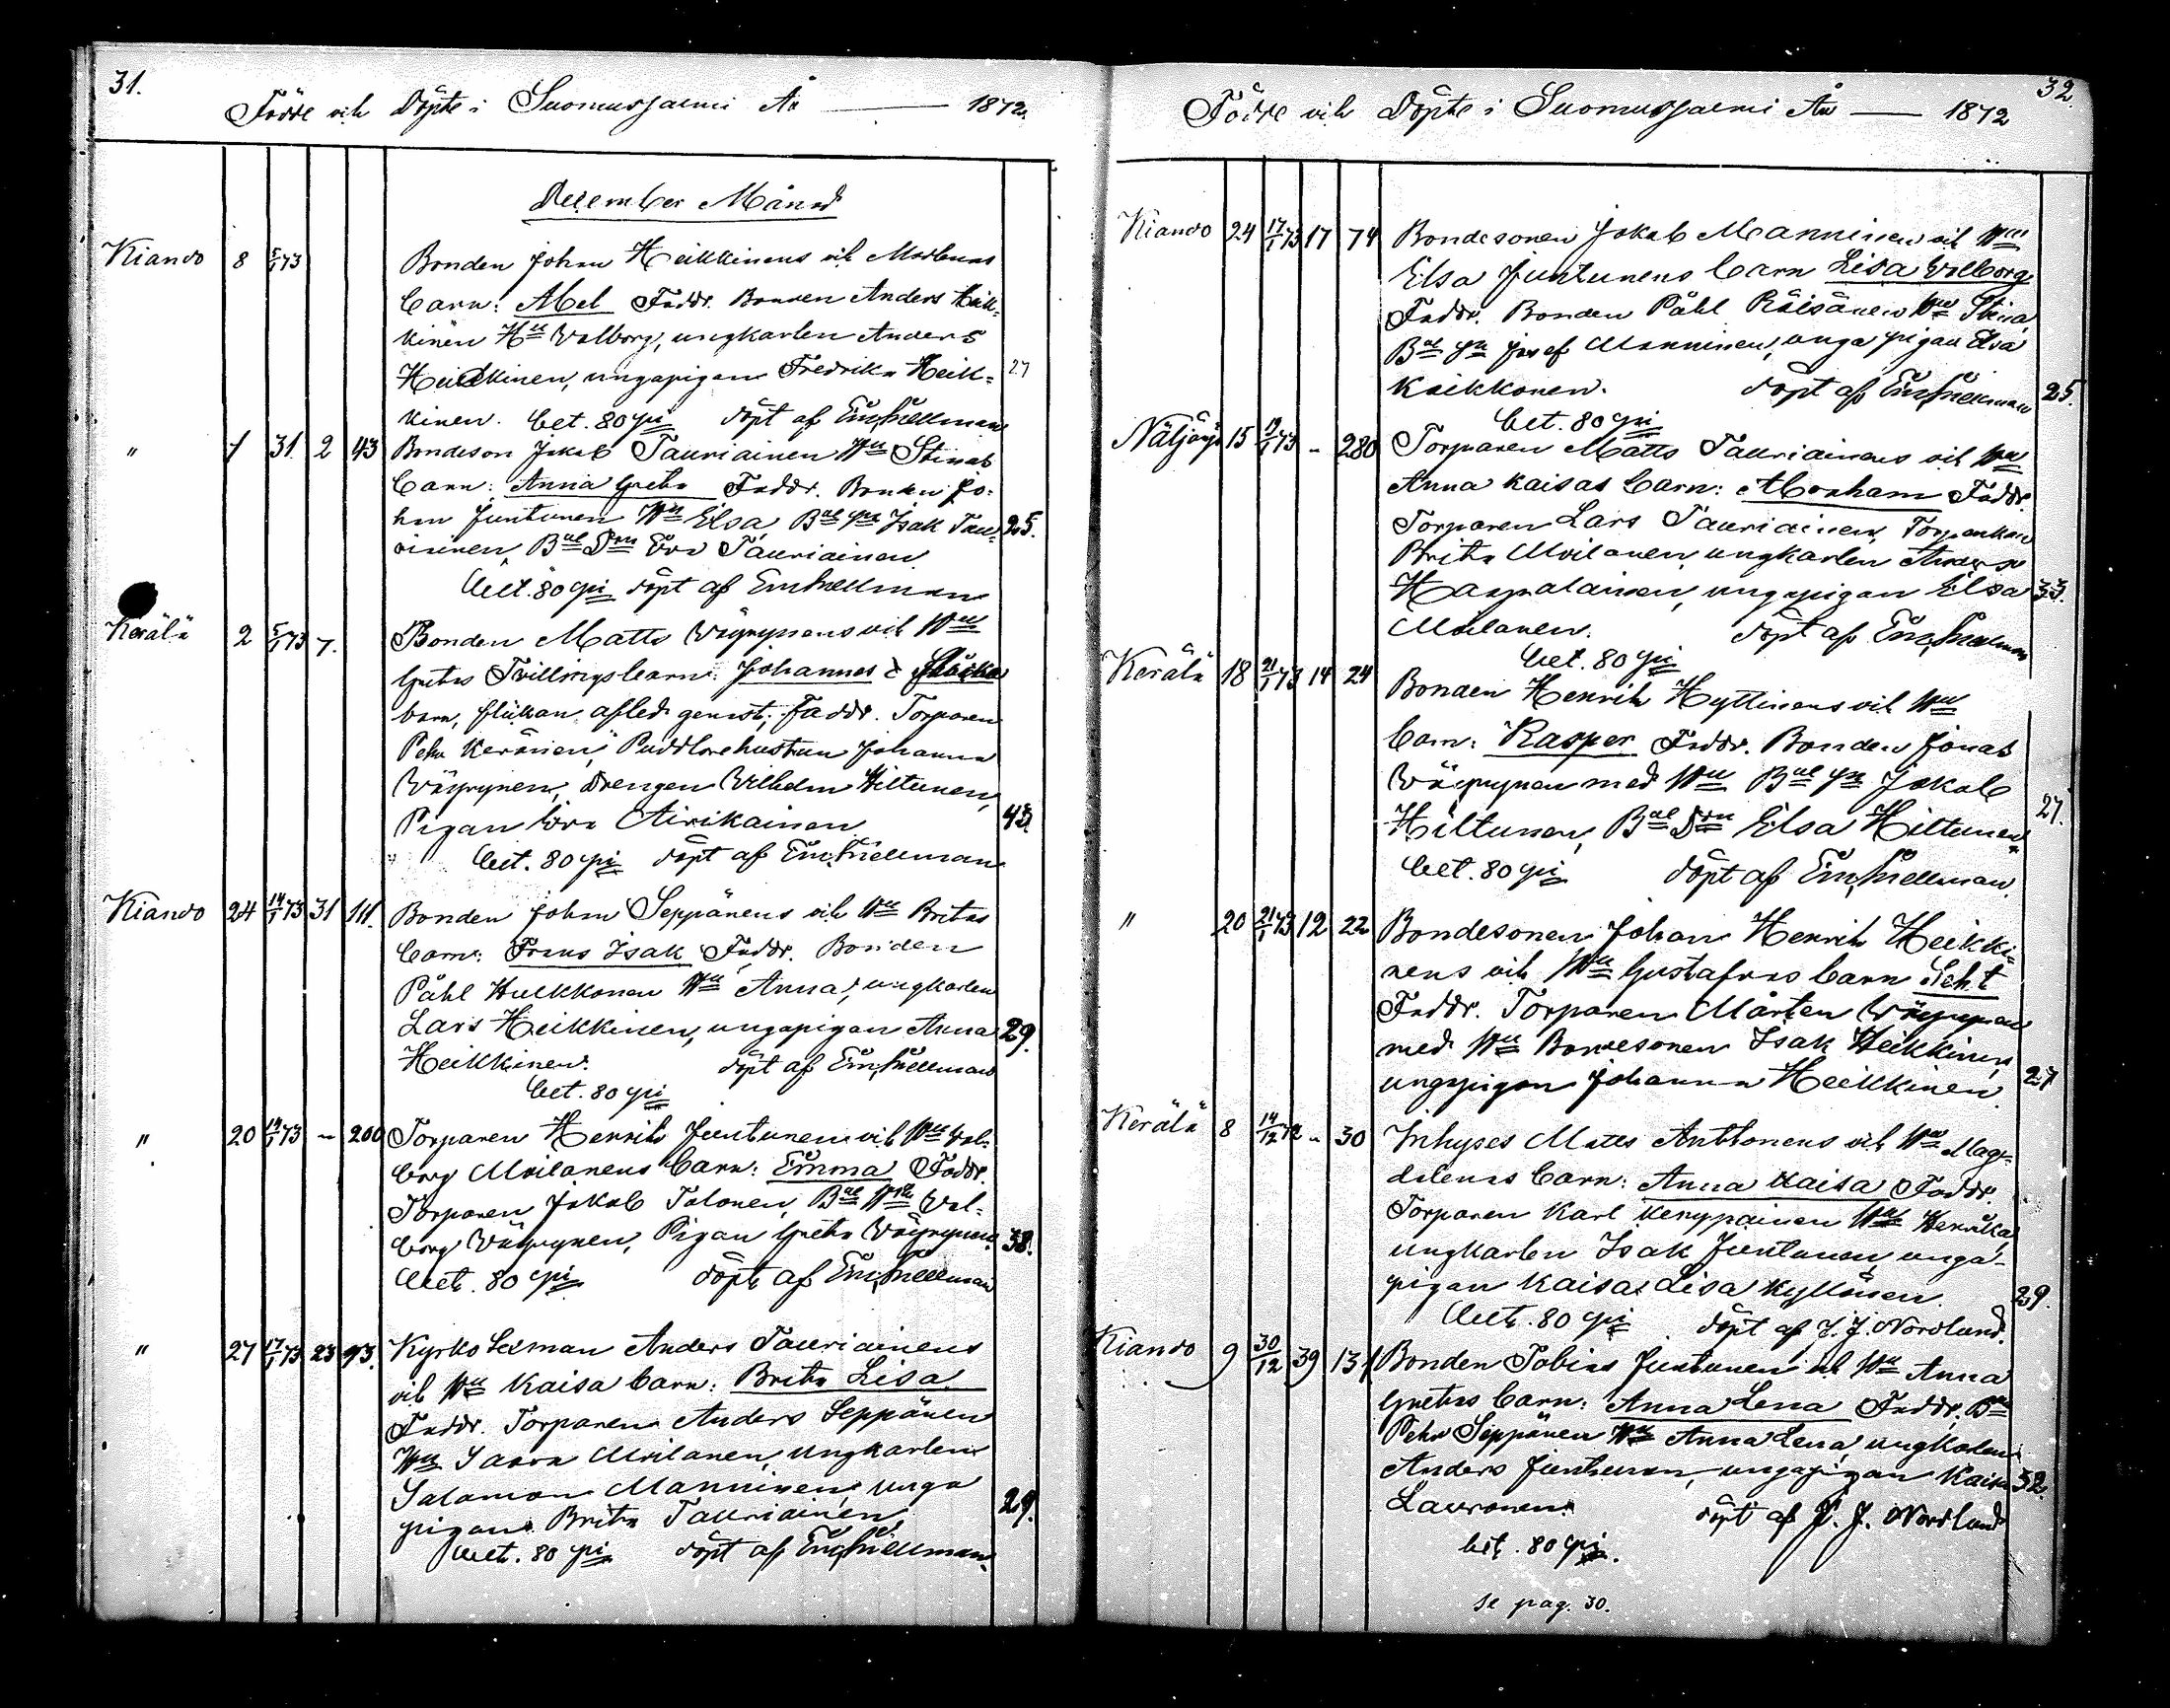 31.
Födde och Döpte i Suomussalmi År — 1872.
December Månad
Kiando 8 5/1 73 Bonden Johan Heikkinens och Walborgs
barn: Abel Faddr. Bonden Anders Heik-
kinen Hu Walborg, ungkarlen Anders
Heikkinen, ungapigan Fredrika Heik= 27
kinen. bet. 80 pi döpt af Em. Snellman
" 1 31 2 43 Bondeson Jakob Tauriainen Hu Stinas
barn: Anna Greta Faddr. Bonden Jo-
han Juntunen Hu Elsa, Bde Sn Isak Tau- 25.
riainen, Bde Drn Eva Tauriainen
bet. 80 pi döpt af Em Snellman
Kerälä 2 5/1 73 7. Bonden Matts Wäyrynens och Hu
Gretas Tvillingsbarn: Johannes &
barn, flickan afled genast; Faddr. Torparen
Pehr Keränen, Johanna
Wäyrynen, Drengen Wilhelm Hiltunen,
Pigan Eva Airikainen 43
bet. 80 pi döpt af Em. Snellman
Kiando 24 14/1 73 31 111. Bonden Johan Seppänens och Hu Britas
barn: Frans Isak Faddr. Bonden
Påhl Hulkkonen Hu Anna, ungkarlen
Lars Heikkinen, ungapigan Anna 29.
Heikkinen. döpt af Em. Snellman
bet. 80 pi
" 20 14/1 73 - 200 Torparen Henrik Juntunen och Hu Wal-
borg Moilanens barn: Emma Faddr.
Torparen Jakob Tolonen, Bde Wal-
borg Wäyrynen, Pigan Greta Wäyrynen. 38.
bet. 80 pi döpt af Em. Snellman
" 27 17/1 73 23 93. Kyrko Sexman Anders Tauriainens
och Hu Kaisa barn: Brita Lisa
Faddr. Torparen Anders Seppänen
Hu Saara Moilanen, ungkarlen
Salamon Manninen, unga
pigan Brita Tauriainen 29.
bet. 80 pi döpt af Em. Snellman.
32.
Födde och Döpte i Suomussalmi År — 1872
Kiando 24 17/1 73 17 74 Bondesonen Jakob Manninen och Hu
Elsa Juntunens barn Lisa Walborg
Faddr. Bonden Påhl Räisänen Hu Stina,
Bde Sn Josef Manninen, unga pigan Elsa
Keikkonen. döpt af Em. Snellman 25.
bet. 80 pi
Näljänjä 15 19/1 73 - 280 Torparen Matts Tauriainens och Hu
Anna Kaisas barn: Abraham Faddr.
Torparen Lars Tauriainen,
Brita Moilanen, ungkarlen Anders
Haapalainen, ungapigan Elsa 33.
Moilanen. döpt af Em. Snellman
bet. 80 pi
Kerälä 18 21/1 73 14 24 Bonden Henrik Hyttinens och Hu
barn: Kasper Faddr. Bonden Jonas
Wäyrynen med Hu Bde Sn Jakob 27.
Hiltunen, Bde Drn Elsa Hiltunen
bet. 80 pi döpt af Em. Snellman
" 20 21/1 73 12 22 Bondesonen Johan Henrik Heikki-
nens och Hu Gustafvas barn Seht
Faddr. Torparen Mårten Wäyrynen
med Hu Bondesonen Isak Heikkinen,
ungapigan Johanna Heikkinen. 27
Kerälä 8 14/12 72 - 30 Inhyses Matts Anttonens och Hu Mag-
dalenas barn: Anna Kaisa Faddr.
Torparen Karl Kemppainen Hu Henrika,
ungkarlen Isak Juntunen, unga-
pigan Kaisa Lisa Kyllönen. 29.
bet. 80 pi döpt af J. J. Nordlund.
Kiando 9 30/12 39 131 Bonden Tobias Juntunen och Hu Anna
Gretas barn: Anna Lena Faddr. Bn
Pehr Seppänen Hu Anna Lena, ungkarlen
Anders Juntunen, ungapigan Kaisa 32.
Lauronen. döpt af J. J. Nordlund
bet. 80 pi.
se pag. 30.